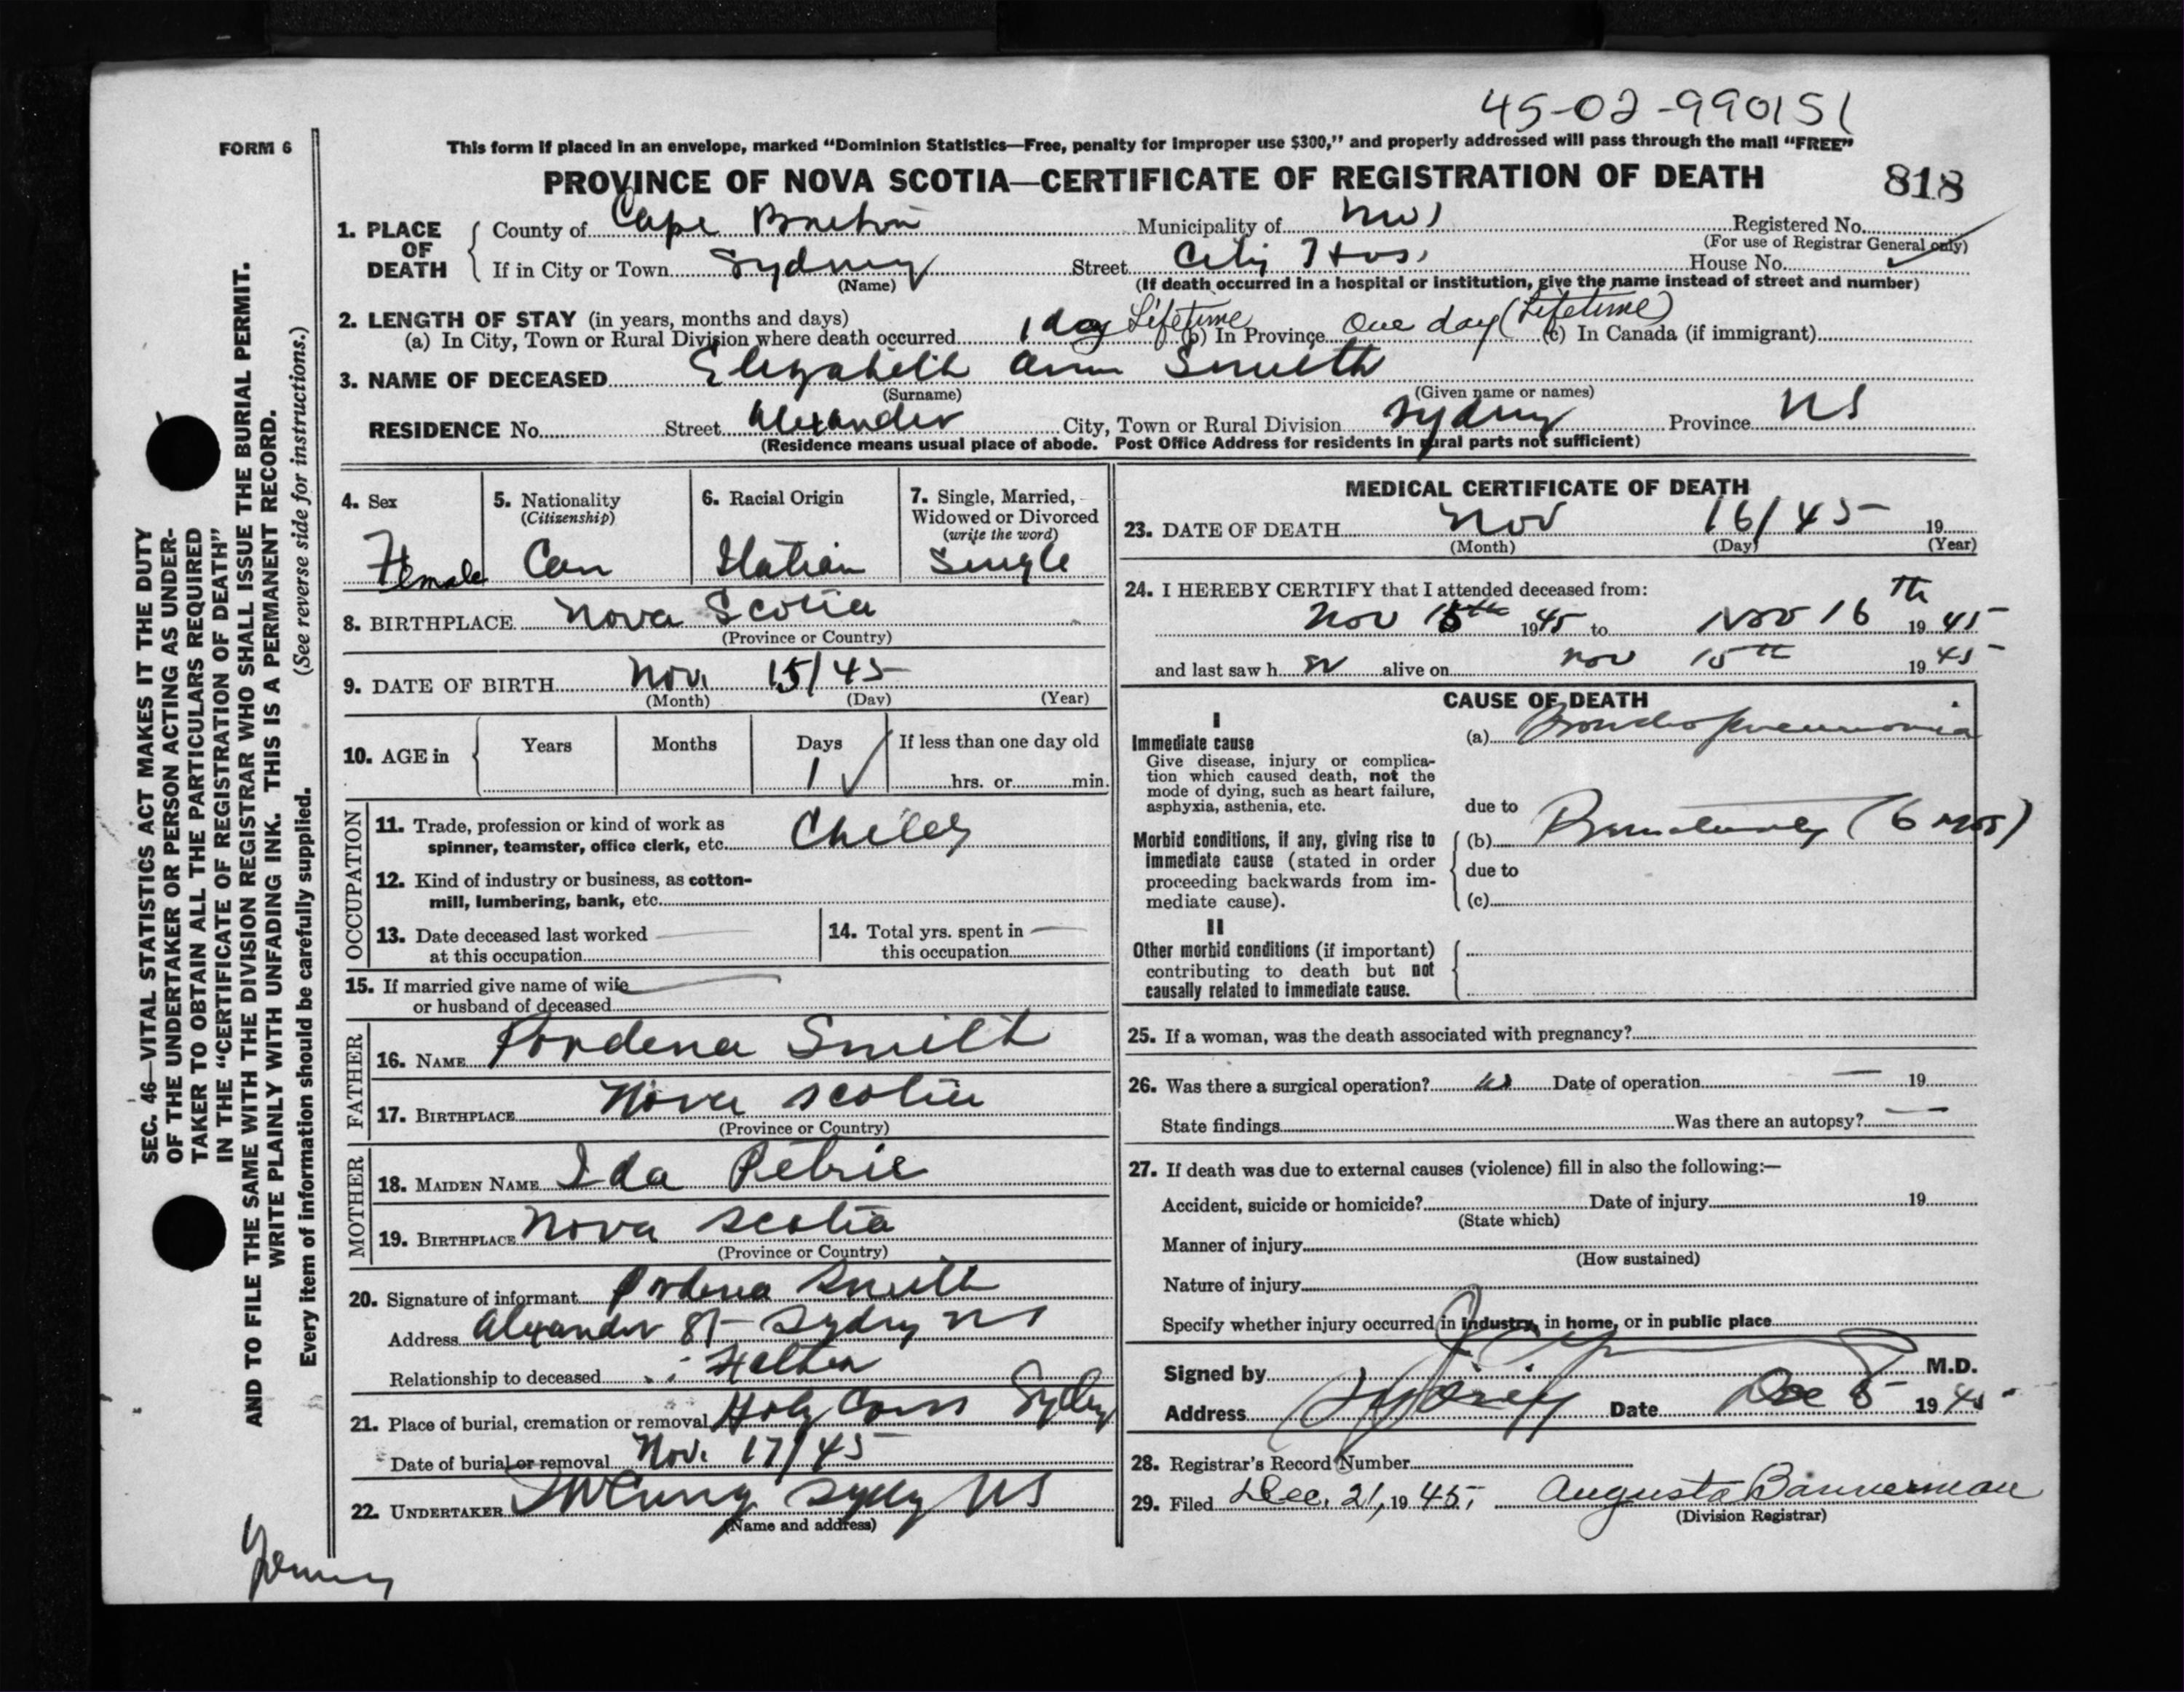 45-02-990151
FORM 6
This form if placed in an envelope, marked “Dominion Statistics—Free, penalty for improper use $300,” and properly addressed will pass through the mail “FREE”
PROVINCE OF NOVA SCOTIA—CERTIFICATE OF REGISTRATION OF DEATH 818
1. PLACE OF DEATH
County of Cape Breton Municipality of Registered No.
(For use of Registrar General only)
If in City or Town Sydney Street City Hos. House No.
(Name) (If death occurred in a hospital or institution, give the name instead of street and number)
2. LENGTH OF STAY (in years, months and days)
(a) In City, Town or Rural Division where death occurred 1 day Lifetime (b) In Province One day (Lifetime) (c) In Canada (if immigrant)
3. NAME OF DECEASED Elizabeth Ann Smith
(Surname) (Given name or names)
RESIDENCE No. Street Alexander City, Town or Rural Division Sydney Province NS
(Residence means usual place of abode. Post Office Address for residents in rural parts not sufficient)
4. Sex
Female
5. Nationality
(Citizenship)
Can
6. Racial Origin
7. Single, Married,
Widowed or Divorced
(write the word)
Single
8. BIRTHPLACE Nova Scotia
(Province or Country)
9. DATE OF BIRTH Nov. 15/45
(Month) (Day) (Year)
10. AGE in Years Months Days If less than one day old
1 hrs. or min.
OCCUPATION
11. Trade, profession or kind of work as
spinner, teamster, office clerk, etc.
12. Kind of industry or business, as cotton-
mill, lumbering, bank, etc.
13. Date deceased last worked
at this occupation
14. Total yrs. spent in
this occupation
15. If married give name of wife
or husband of deceased
FATHER
16. NAME Smith
17. BIRTHPLACE Nova Scotia
(Province or Country)
MOTHER
18. MAIDEN NAME Ida Petrie
19. BIRTHPLACE Nova Scotia
(Province or Country)
20. Signature of informant Smith
Address Alexander St Sydney NS
Relationship to deceased Father
21. Place of burial, cremation or removal Holy Cross Sydney
Date of burial or removal Nov. 17/45
22. UNDERTAKER Sydney NS
(Name and address)
MEDICAL CERTIFICATE OF DEATH
23. DATE OF DEATH Nov 16/45 19
(Month) (Day) (Year)
24. I HEREBY CERTIFY that I attended deceased from:
Nov 15th 1945 to Nov 16th 1945
and last saw her alive on Nov 15th 1945
CAUSE OF DEATH
I
Immediate cause
Give disease, injury or complica-
tion which caused death, not the
mode of dying, such as heart failure,
asphyxia, asthenia, etc.
(a) Bronchopneumonia
due to
Morbid conditions, if any, giving rise to
immediate cause (stated in order
proceeding backwards from im-
mediate cause).
(b) Prematurity (6 mos)
due to
(c)
II
Other morbid conditions (if important)
contributing to death but not
causally related to immediate cause.
25. If a woman, was the death associated with pregnancy?
26. Was there a surgical operation? Date of operation — 19
State findings Was there an autopsy? —
27. If death was due to external causes (violence) fill in also the following:—
Accident, suicide or homicide? Date of injury 19
(State which)
Manner of injury
(How sustained)
Nature of injury
Specify whether injury occurred in industry, in home, or in public place
Signed by M.D.
Address Sydney Date Dec 5 1945
28. Registrar's Record Number
29. Filed Dec. 21, 1945, Augusta Bannerman
(Division Registrar)
SEC. 46—VITAL STATISTICS ACT MAKES IT THE DUTY
OF THE UNDERTAKER OR PERSON ACTING AS UNDER-
TAKER TO OBTAIN ALL THE PARTICULARS REQUIRED
IN THE “CERTIFICATE OF REGISTRATION OF DEATH”
AND TO FILE THE SAME WITH THE DIVISION REGISTRAR WHO SHALL ISSUE THE BURIAL PERMIT.
WRITE PLAINLY WITH UNFADING INK. THIS IS A PERMANENT RECORD.
Every item of information should be carefully supplied. (See reverse side for instructions.)